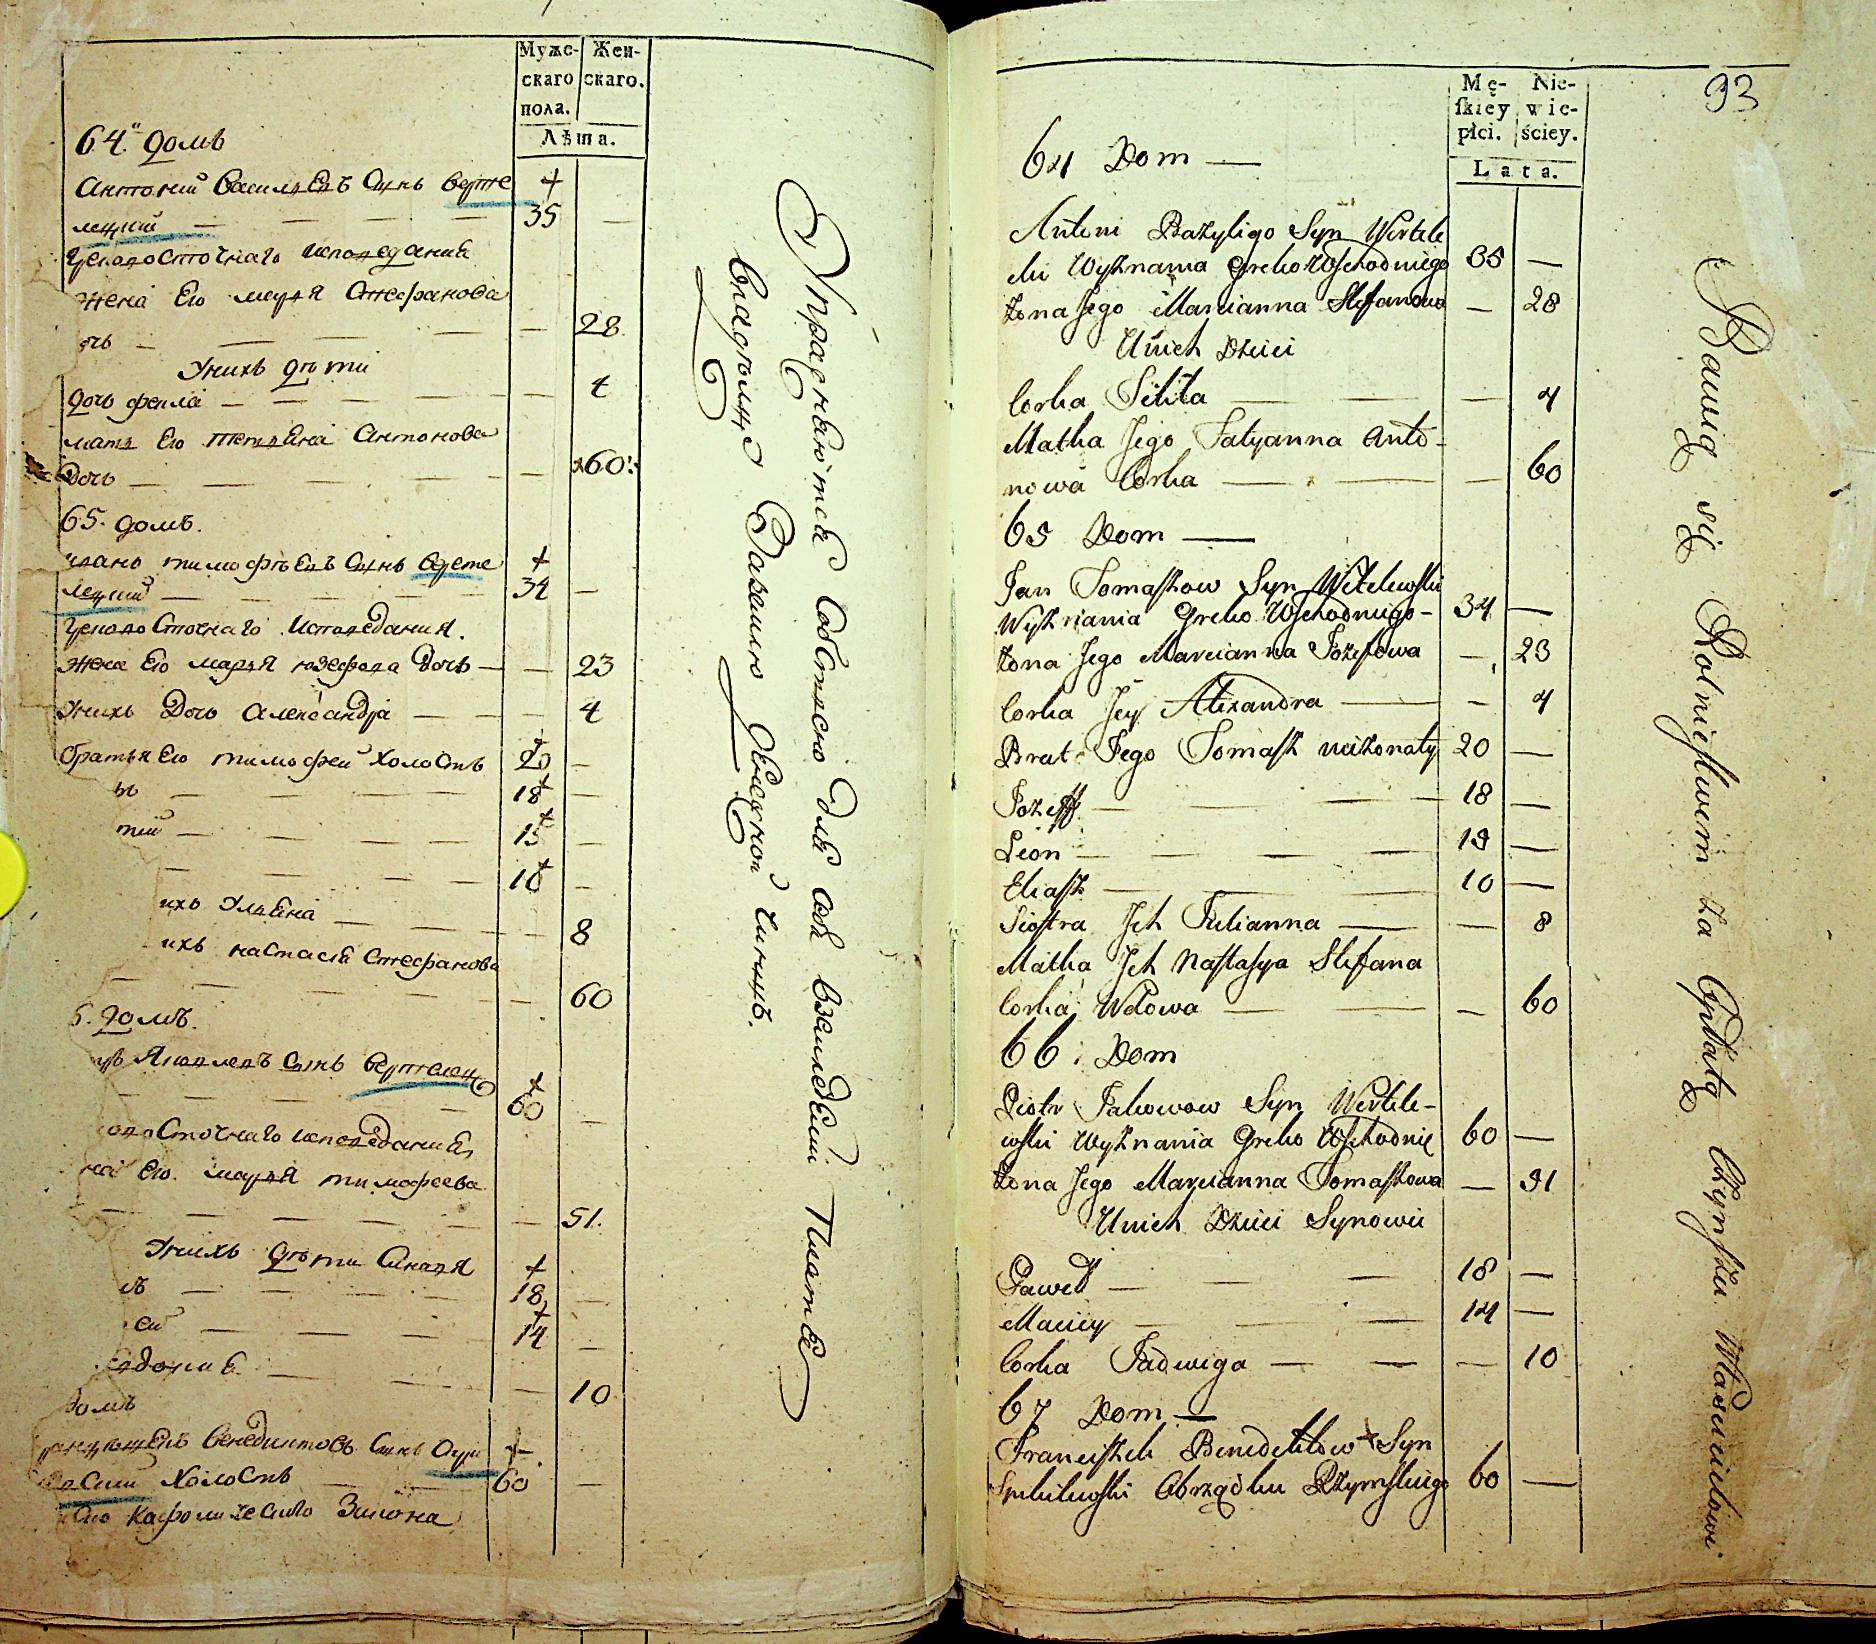 Муже-
скаго
пола.
Жен-
скаго.
Лѣта.
64. домъ
Антоній Васильевъ сынъ Верте
лецкій — 35 —
Грековосточнаго исповеданія
жена Его марья Стефанова
очь — — 28
У нихъ дѣти
дочь фекла — — 4
мать Его татьяна Антонова
Дочь — — 60
65. домъ.
иванъ тимофѣевъ сынъ Верте
лецкий — 34 —
Грековосточнаго Исповедания.
жена Его марья юзефова дочь — — 23
У нихъ Дочь Александра — — 4
братья Его тимофей холостъ 20 —
ъ — 18 —
тий — 15 —
— 10 —
ихъ Ульяна — 8
ихъ настасія Стефанова
— — 60
6. домъ.
ръ Яковлевъ сынъ Вертелец
— 60 —
восточнаго исповеданія
на Его марья тимофеева
— — 51.
У нихъ дѣти Сыновья
лъ — 18 —
ей — 14 —
— — 10
домъ
Венедиктовъ сынъ
холостъ — 60 —
Католическаго Закона
Упражняются собственно для себя в земледелии платя
владельцу Землею денежной чиншъ.
93
Mę-
ſkiey
płci.
Nie-
wie-
ściey.
Lata.
64 Dom —
Antoni Bazyligo Syn Wertele
cki Wyznania Greko Wschodniego 35 —
Zona Jego Marcianna Stefanowa — 28
U nich Dzieci
Corka Tekla — — 4
Matka Jego Tatyanna Anto-
nowa Corka — — 60
65 Dom —
Jan Tomaszow Syn Wetelewski
Wyznania Greko Wschodniego — 34 —
Zona Jego Marcianna Jozefowa — 23
Corka Jey Alexandra — — 4
Brat Jego Tomasz niezonaty 20 —
Jozeff — 18 —
Leon — 15 —
Eliasz — 10 —
Siostra Ich Julianna — — 8
Matka Ich Nastasya Stefana
Corka Wdowa — — 60
66 Dom
Piotr Jakowow Syn Wertele-
wski Wyznania Greko Wschodnie 60 —
Zona Jego Marcianna Tomaszowa — 51
U nich Dzieci Synowie
Paweł — 18 —
Maciey — 14 —
Corka Jadwiga — — 10
67 Dom —
Franciszek Benedektow Syn
Obrządku Rzymskiego 60 —
Bawią się Rolnictwem za Opłatą Czynszu Właścicielowi.